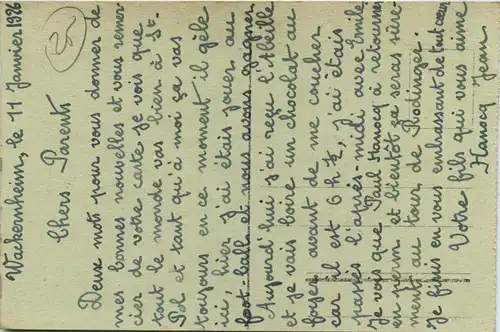 Wackernheim, le 11 Janvier 1926
Chers Parents
Deux mots pour vous donner de
mes bonnes nouvelles et vous remer-
cier de votre carte je vois que
tout le monde vas bien à St.
Pol et tant qu'à moi ça vas
toujours en ce moment il gèle
ici hier j'ai étais jouer au
foot-ball et nous avons gagner
Aujourd'hui j'ai reçu l'Abeille
et je vais boire un chocolat au
foyer avant de me coucher
car il est 6 h ½, j'ai étais
passés l'après-midi avec Emile
Je vois que Paul Hanocq à retourner
en perm et bientôt ça seras sûre-
ment au tour de Rodinger.
Je finis en vous embrassant de tout cœur
Votre fils qui vous aime
Hanocq Jean